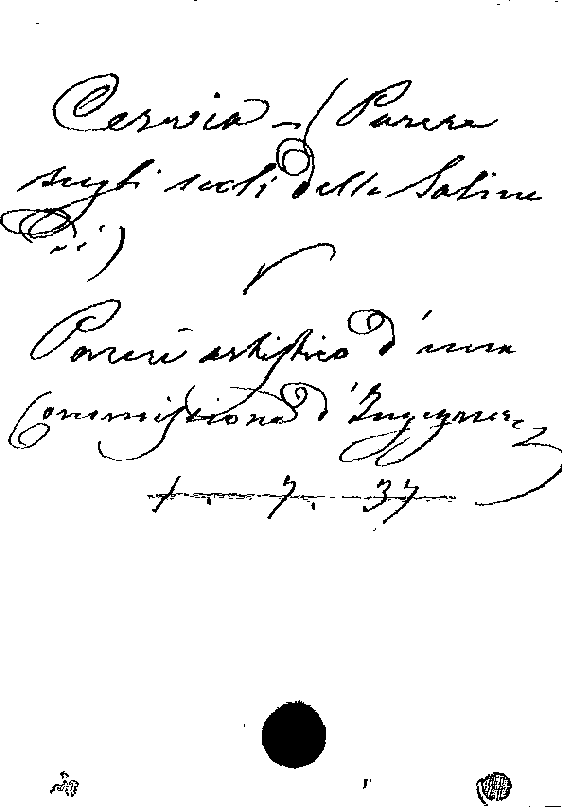 Cervia - (Parere
sugli scoli delle Saline
di)
Parere artistico d'una
Commissione d'Ingegneri
1. 7. 37